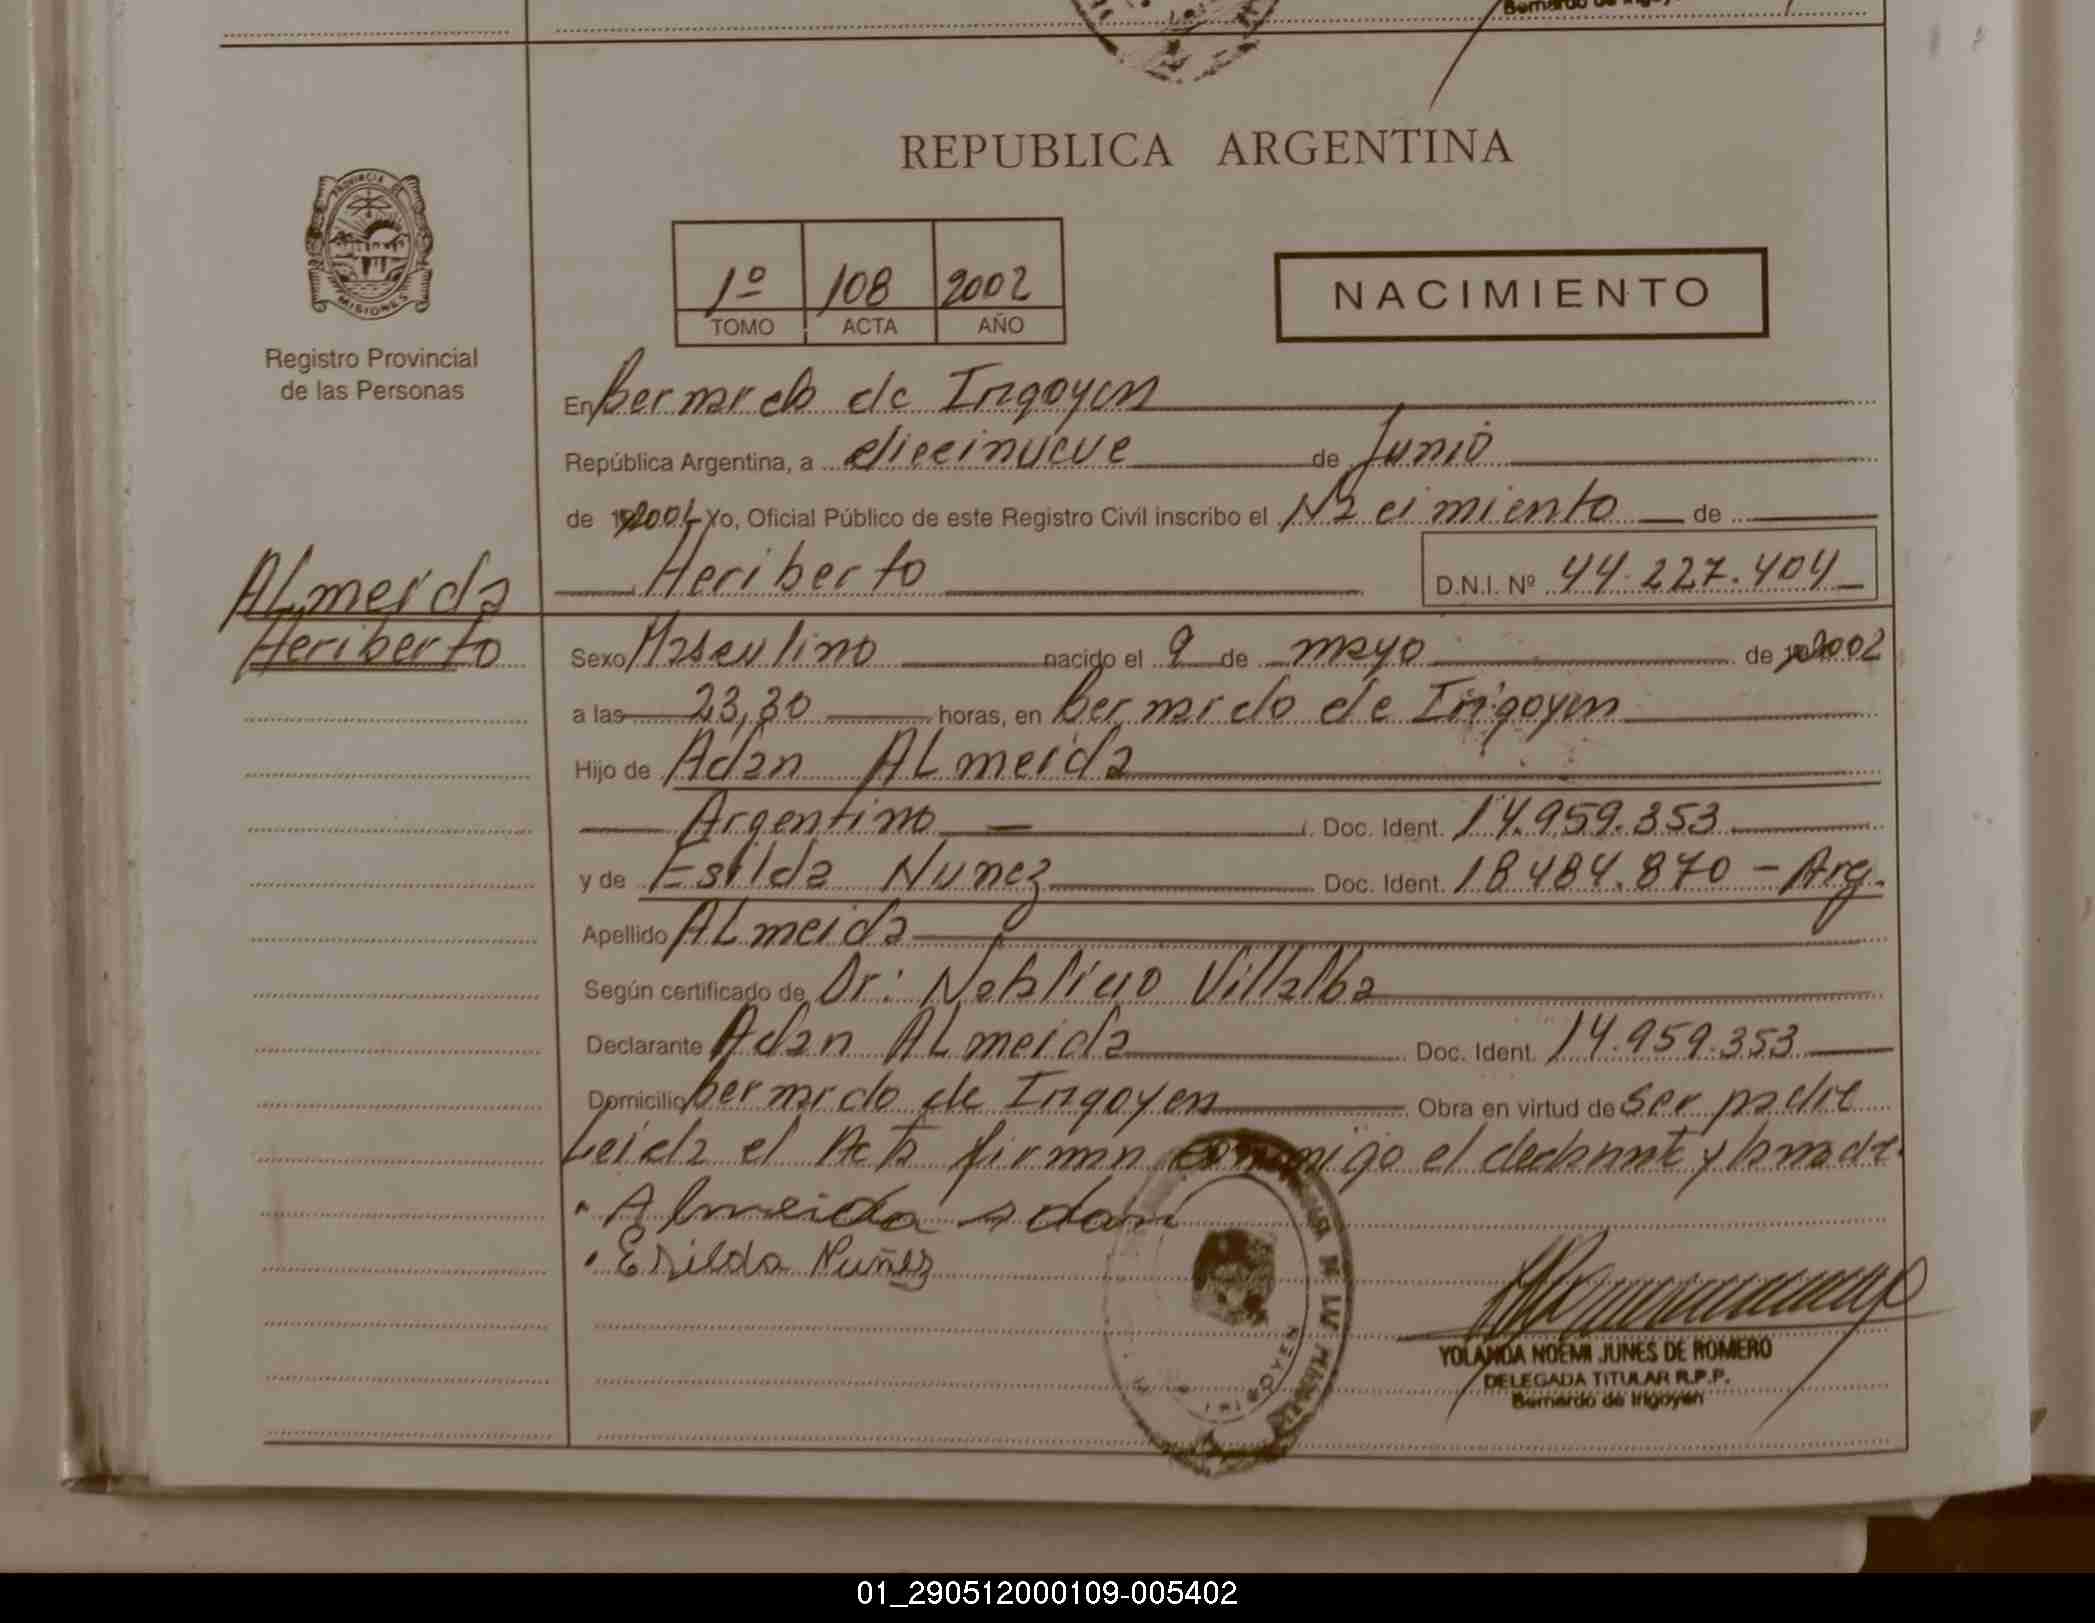 Bernardo de Irigoyen
REPUBLICA ARGENTINA
PROVINCIA DE
MISIONES
1º 108 2002
TOMO ACTA AÑO
NACIMIENTO
Registro Provincial
de las Personas
En Bernardo de Irigoyen
República Argentina, a diecinueve de Junio
de 2002 Yo, Oficial Público de este Registro Civil inscribo el Nacimiento de
Heriberto D.N.I. Nº 44.227.404
Almeida
Heriberto
Sexo Masculino nacido el 9 de mayo de 2002
a las 23,30 horas, en Bernardo de Irigoyen
Hijo de Adan Almeida
Argentino Doc. Ident. 14.959.353
y de Esilda Nunez Doc. Ident. 18.484.870 - Arg.
Apellido Almeida
Según certificado de Dr: Villalba
Declarante Adan Almeida Doc. Ident. 14.959.353
Domicilio Bernardo de Irigoyen Obra en virtud de ser padre
Leida el Acta firman conmigo el declarante y la madre
. Almeida adan
. Esilda Nuñez
YOLANDA NOEMI JUNES DE ROMERO
DELEGADA TITULAR R.P.P.
Bernardo de Irigoyen
01_290512000109-005402